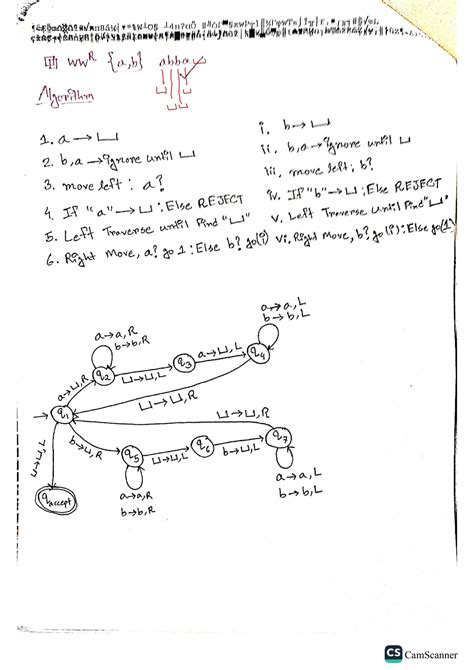 wwᴿ {a,b} abba
Algorithm
1. a → ⊔
2. b,a → ignore until ⊔
3. move left : a?
4. If "a" → ⊔ : Else REJECT
5. Left Traverse until Find "⊔"
6. Right Move, a? go 1 : Else b? go(i)
i. b → ⊔
ii. b,a → ignore until ⊔
iii. move left : b?
iv. If "b" → ⊔ : Else REJECT
v. Left Traverse until Find "⊔"
vi. Right Move, b? go(i) : Else go(1)
a→a,R
b→b,R
a→a,L
b→b,L
a→⊔,R
q2
⊔→⊔,L
q3
a→⊔,L
q4
⊔→⊔,R
q1
⊔→⊔,R
⊔→⊔,L
b→⊔,R
q5
⊔→⊔,L
q6
b→⊔,L
q7
q accept
a→a,R
b→b,R
a→a,L
b→b,L
CS CamScanner